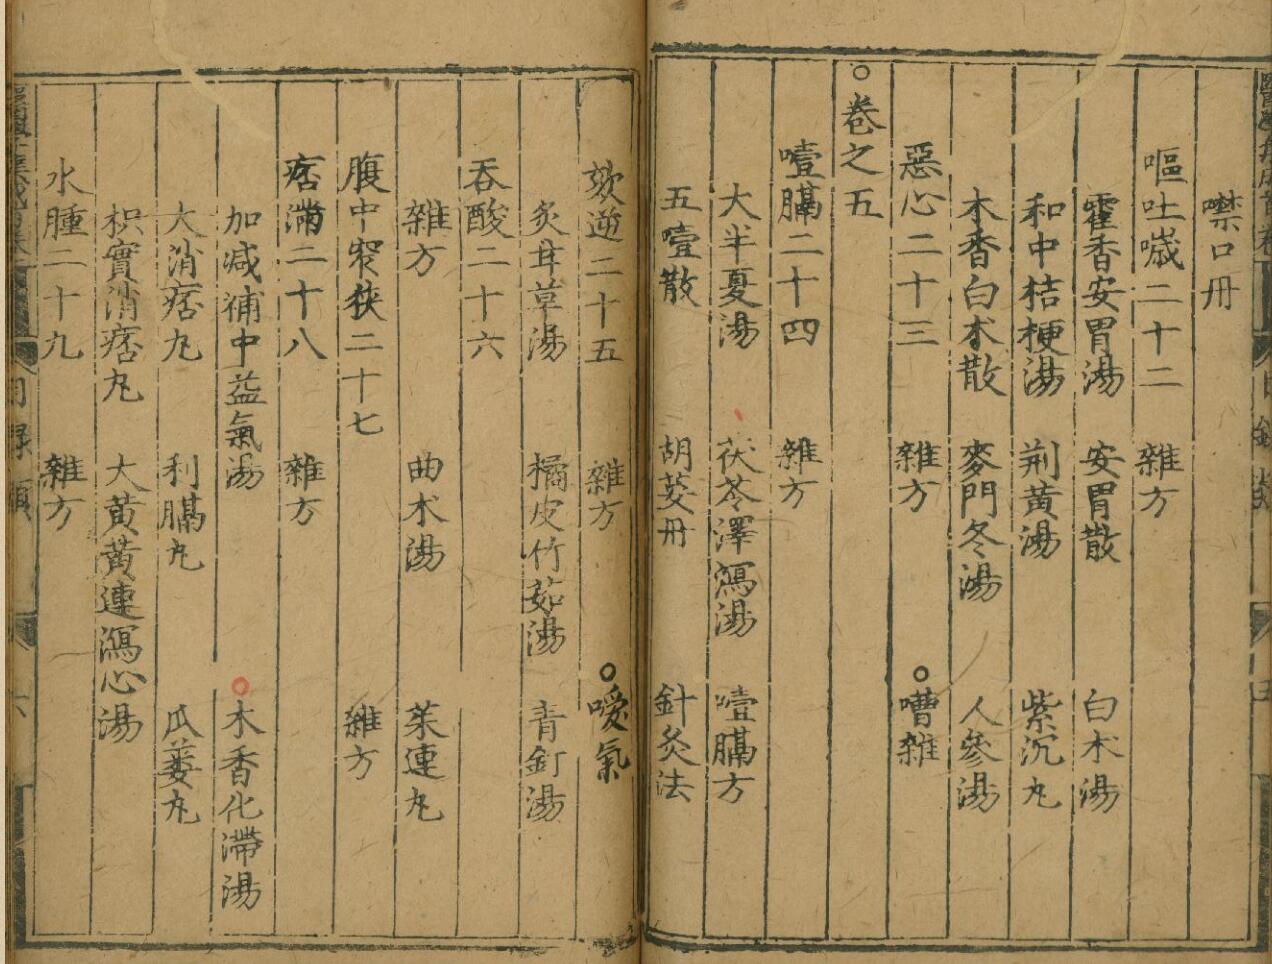 噤口丹
嘔吐噦二十二 雜方
霍香安胃湯 安胃散 白朮湯
和中桔梗湯 荆黄湯 紫沉丸
木香白朮散 麥門冬湯 人參湯
惡心二十三 雜方 ○嘈雜
○卷之五
噎膈二十四 雜方
大半夏湯 茯苓澤瀉湯 噎膈方
五噎散 胡荽丹 針灸法
欬逆二十五 雜方 ○噯氣
炙甘草湯 橘皮竹茹湯 青釘湯
吞酸二十六
雜方 曲朮湯 茱連丸
腹中窄狹二十七 雜方
痞滿二十八 雜方
加减補中益氣湯 木香化滯湯
大消痞丸 利膈丸 瓜蔞丸
枳實消痞丸 大黄黄連瀉心湯
水腫二十九 雜方